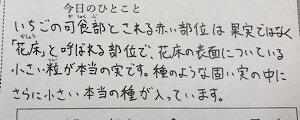 今日のひとこと
いちごの可食部とされる赤い部位は果実ではなく
「花床」と呼ばれる部位で、花床の表面についている
小さい粒が本当の実です。種のような固い実の中に
さらに小さい本当の種が入っています。